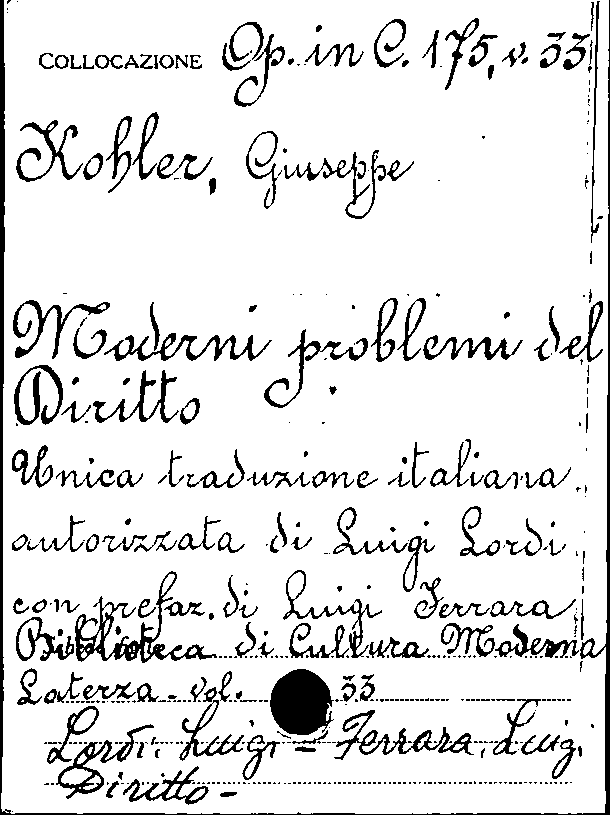 COLLOCAZIONE Op. in C. 175, v. 33
Kohler, Giuseppe
Moderni problemi del
Diritto
Unica traduzione italiana
autorizzata di Luigi Lordi
con prefaz. di Luigi Ferrara
Biblioteca di Cultura Moderna
Laterza - vol. 33
Lordi, Luigi - Ferrara, Luigi
Diritto -